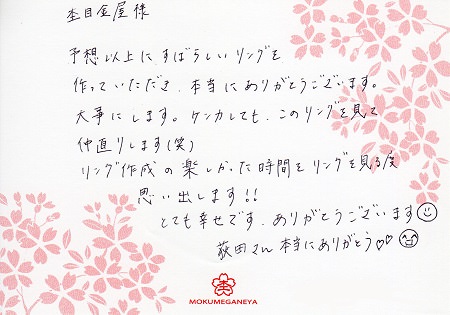 杢目金屋様
予想以上に、すばらしいリングを
作っていただき、本当にありがとうございます。
大事にします。ケンカしても、このリングを見て
仲直りします(笑)
リング作成の楽しかった時間をリングを見る度
思い出します!!
とても幸せです。ありがとうございます
萩田さん本当にありがとう♡♡
杢
MOKUMEGANEYA